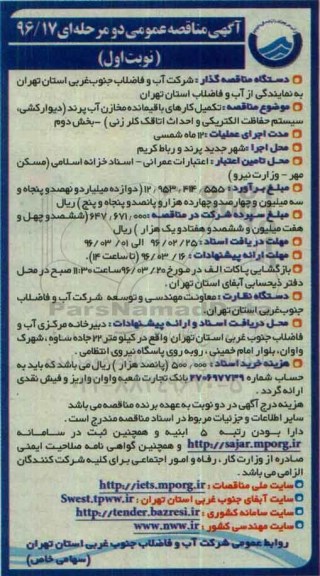 آگهی مناقصه عمومی دو مرحله‌ای ۹۶/۱۷
(نوبت اول)
دستگاه مناقصه گذار : شرکت آب و فاضلاب جنوب غربی استان تهران
به نمایندگی از آب و فاضلاب استان تهران
موضوع مناقصه : تکمیل کارهای باقیمانده مخازن آب پرند (دیوارکشی،
سیستم حفاظت الکتریکی و احداث اتاقک کلر زنی ) -بخش دوم
مدت اجرای عملیات :۱۲ ماه شمسی
محل اجرا :شهر جدید پرند و رباط کریم
محل تامین اعتبار : اعتبارات عمرانی - اسناد خزانه اسلامی (مسکن
مهر - وزارت نیرو )
مبلغ برآورد : ۱۲٫۹۵۳٫۴۱۴٫۵۵۵ (دوازده میلیارد و نهصد و پنجاه و
سه میلیون و چهارصد و چهارده هزار و پانصد و پنجاه و پنج) ریال
مبلغ سپرده شرکت در مناقصه : ۶۴۷٫۶۷۱٫۰۰۰ (ششصد و چهل و
هفت میلیون و ششصد و هفتاد و یک هزار ) ریال
مهلت دریافت اسناد : ۹۶/۰۲/۲۵ الی ۹۶/۰۳/۰۱
مهلت ارائه پیشنهادات : ۹۶/۰۳/۱۶ (تا ساعت ۱۴).
بازگشایی پاکات الف در مورخ ۹۶/۰۳/۲۰ ساعت ۱۱:۳۰ صبح در محل
دفتر ذیحسابی آبفای استان تهران .
دستگاه نظارت : معاونت مهندسی و توسعه شرکت آب و فاضلاب
جنوب غربی استان تهران
محل دریافت اسناد و ارائه پیشنهادات : دبیرخانه مرکزی آب و
فاضلاب جنوب غربی استان تهران واقع در کیلومتر ۲۲ جاده ساوه ، شهرک
واوان، بلوار امام خمینی ، روبه روی پاسگاه نیروی انتظامی .
هزینه خرید اسناد : ۵۰۰٫۰۰۰ (پانصد هزار ) ریال می باشد که باید به
حساب شماره ۲۷۰۶۹۷۷۳۹ بانک تجارت شعبه واوان واریز و فیش نقدی
ارائه گردد .
هزینه درج آگهی در دو نوبت به عهده برنده مناقصه می باشد
سایر اطلاعات و جزئیات مربوط در اسناد مناقصه مندرج است .
دارا بودن رتبه ۵ ابنیه و همچنین ثبت در سامانه
http://sajar.mporg.ir و همچنین گواهی نامه صلاحیت ایمنی
صادره از وزارت کار ، رفاه و امور اجتماعی برای کلیه شرکت کنندگان
الزامی می باشد .
سایت ملی مناقصات : http://iets.mporg.ir
سایت آبفای جنوب غربی استان تهران : Swest.tpww.ir
سایت سامانه کشوری : http://tender.bazresi.ir
سایت مهندسی کشور : www.nww.ir
روابط عمومی شرکت آب و فاضلاب جنوب غربی استان تهران
(سهامی خاص)